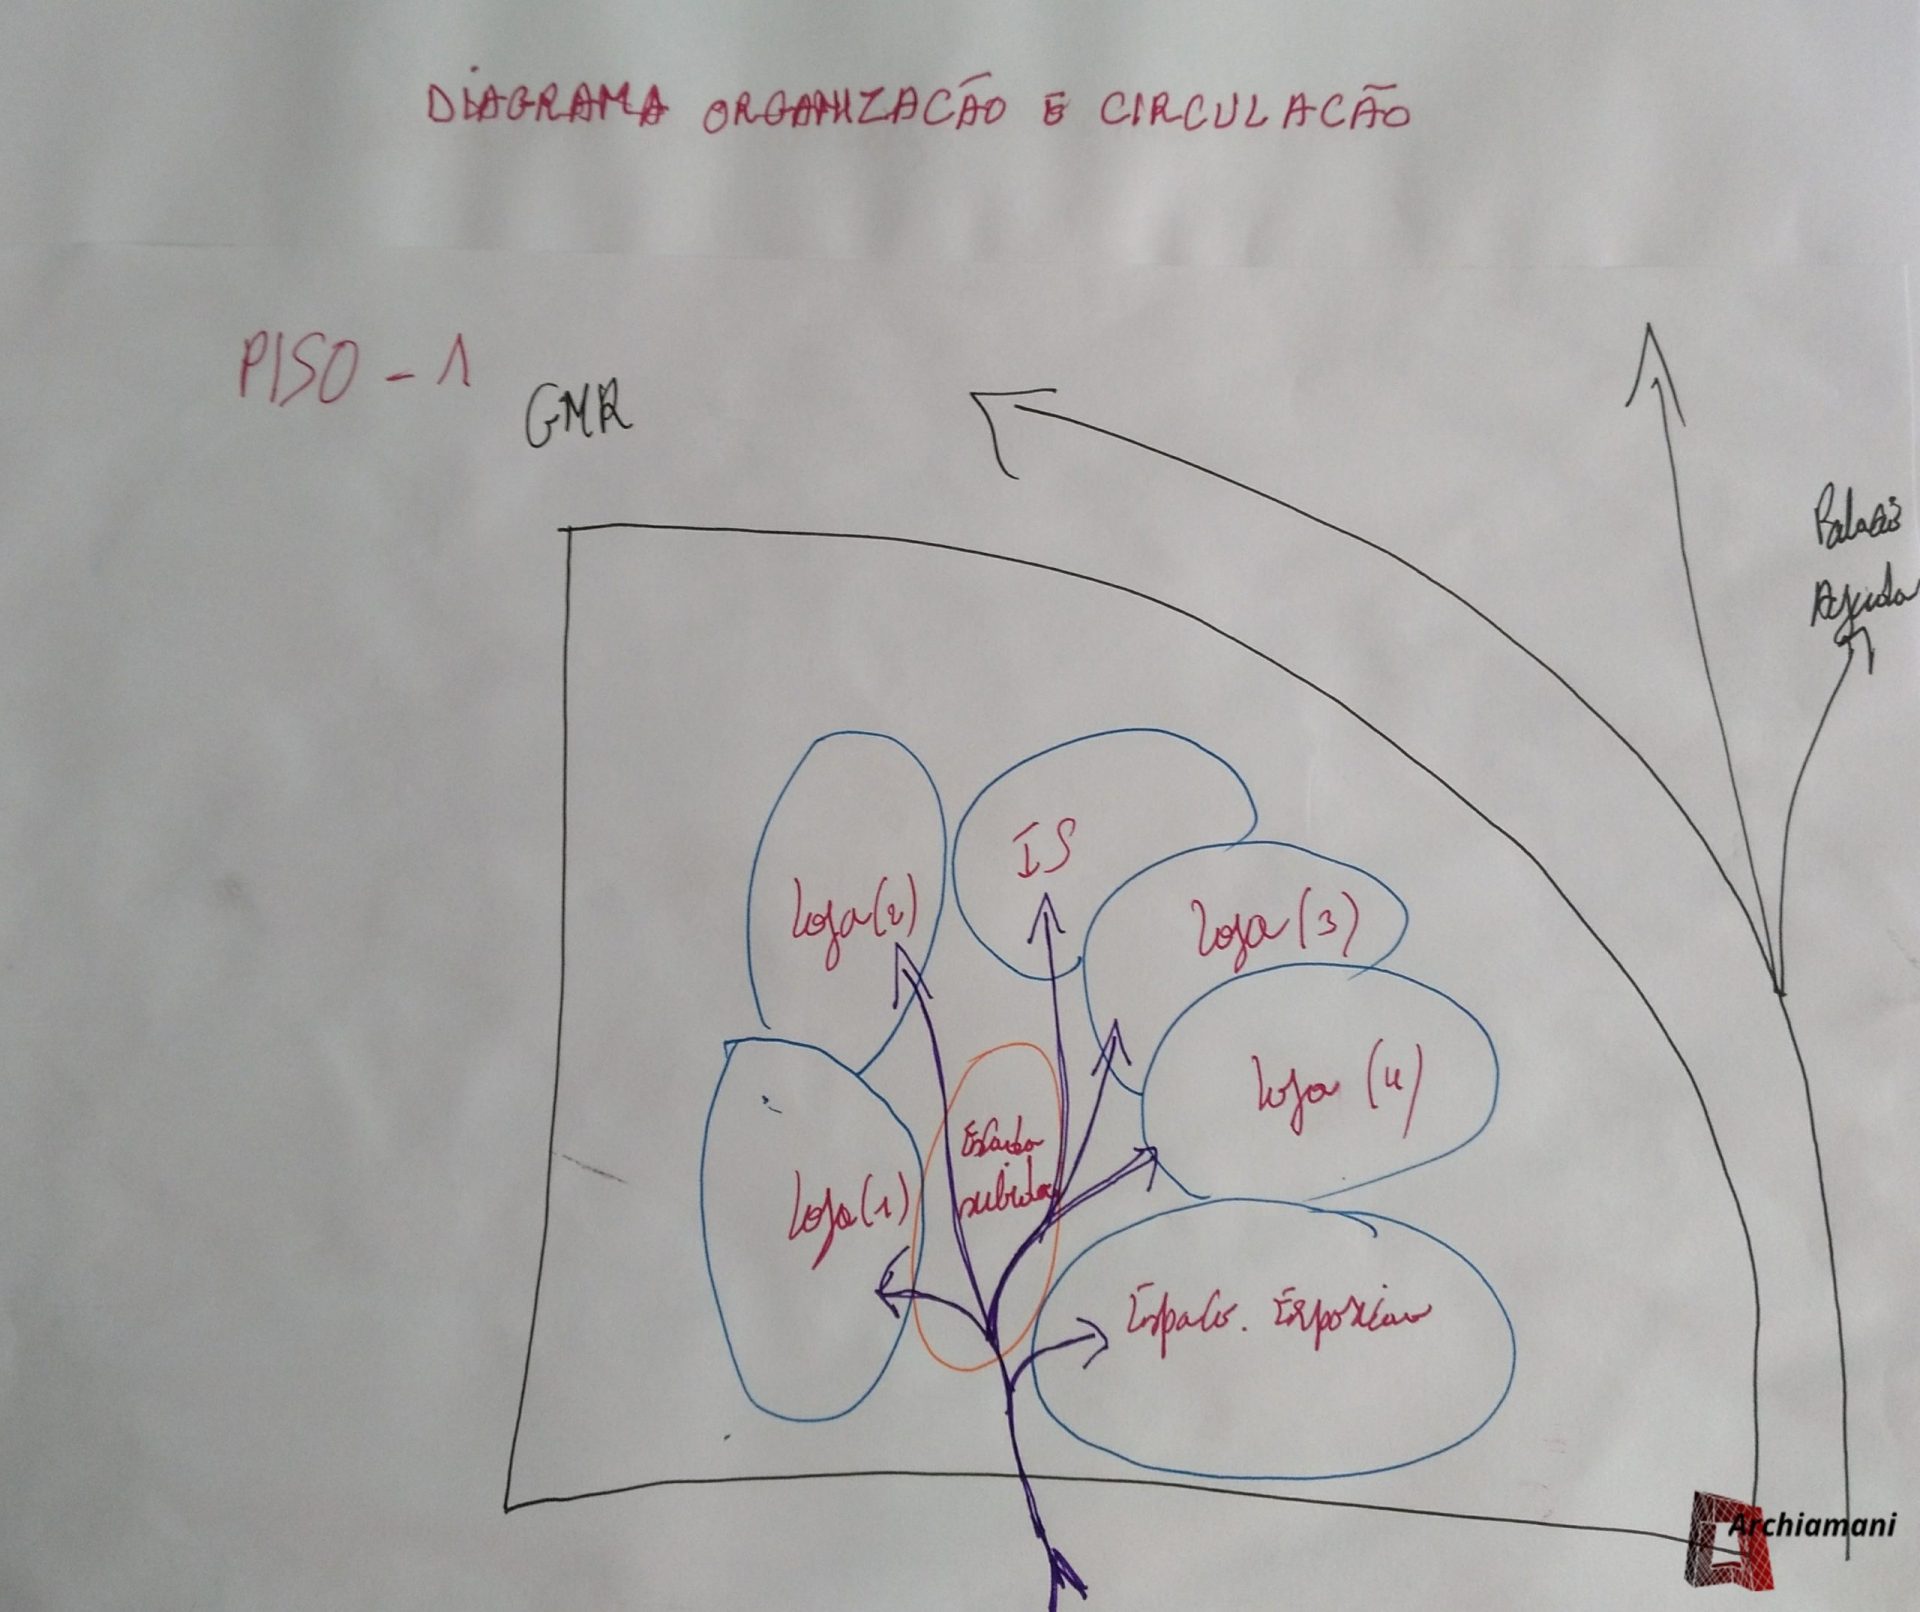 DIAGRAMA ORGANIZACÃO E CIRCULACÃO
PISO - 1
GMR
Palacio
Ajuda
IS
Loja (2)
Loja (3)
Loja (4)
Escada
subida
Loja (1)
Espaco. Exposicao
Archiamani